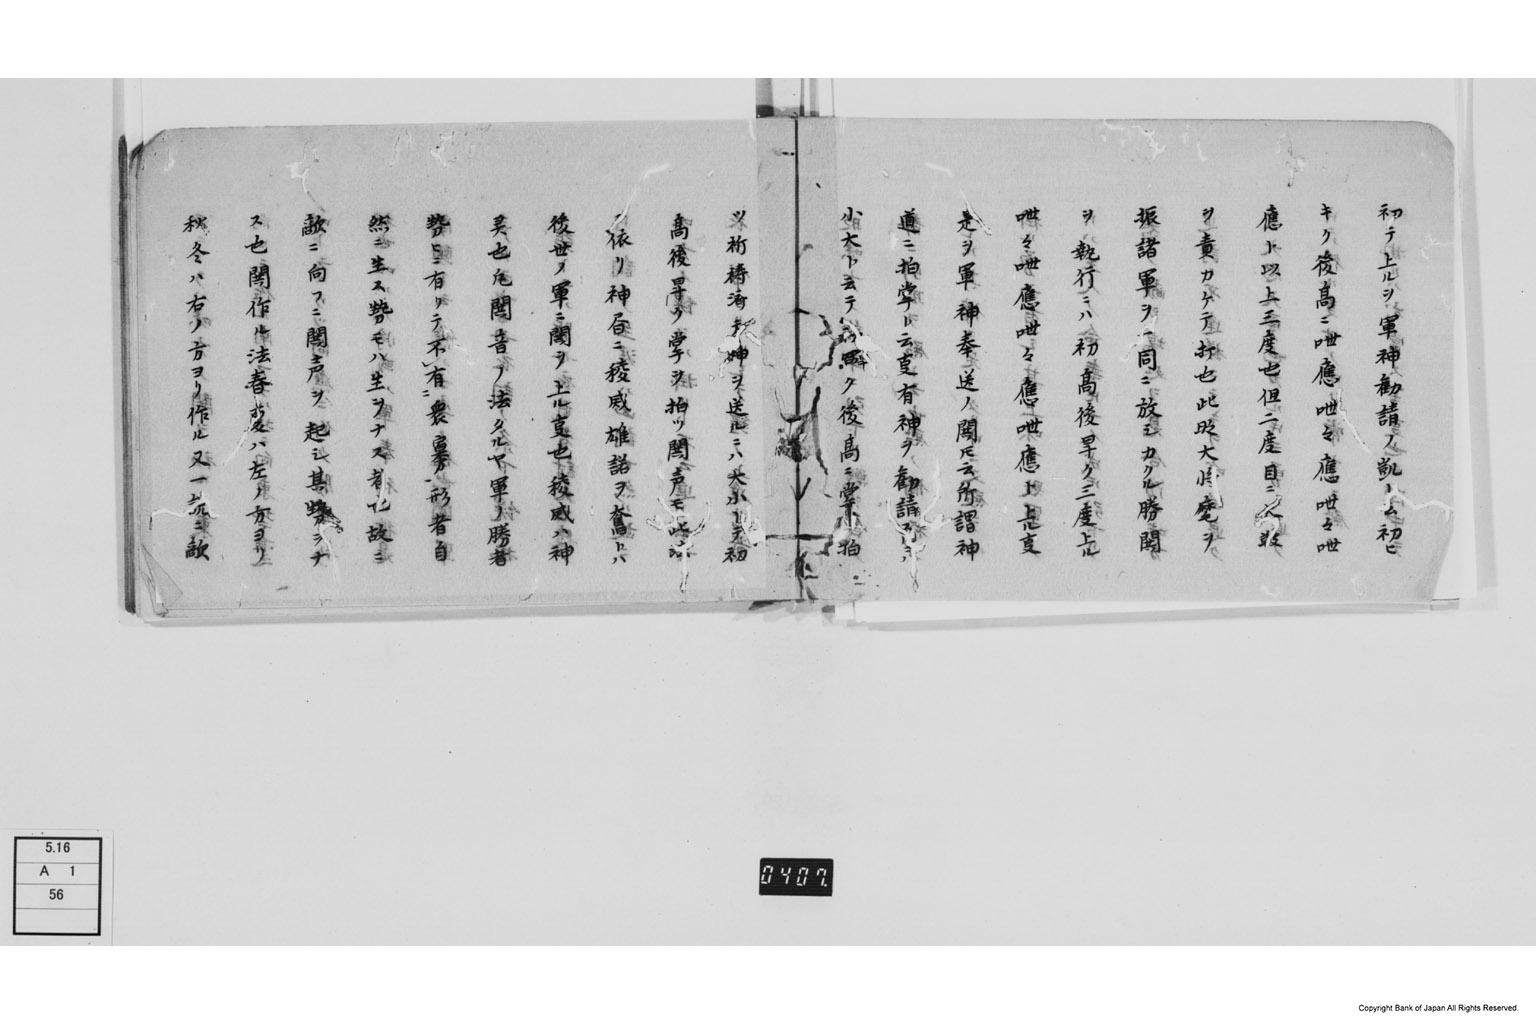 初テ上ルヲ軍神勧請ノ凱ト云初ヒ
キク後高ニ呭應呭々應呭々呭
應ト以上三度也但二度目ニハ敵
ヲ責カケテ打也此時大将麾ヲ
振諸軍ヲ一同ニ放シカクル勝閧
ヲ執行ニハ初高後早ク三度上ル
呭々呭應呭々應呭應ト上ル叓
是ヲ軍神奉送ノ閧ト云所謂神
道ニ拍掌ト云叓有神ヲ勧請
小大ト云テ初ヒクク後高ニ掌ヲ拍
ツ祈祷済テ神ヲ送ルニハ大小トテ初
高後早ク掌ヲ拍ツ閧声モ此法
ニ依リ神居ニ稜威雄詰ヲ奮トハ
後世ノ軍ニ閧ヲ上ル叓也稜威ハ神
㚑也凡閧音ノ法タルヤ軍ノ勝者
勢ヒニ有リテ不有衆寡形者自
然ニ生ス勢モハ生ヲナス者也故ニ
敵ニ向フニ閧声ヲ起シ其勢ヲナ
ス也閧作ル法春夏ハ左ノ方ヨリ
秋冬ハ右ノ方ヨリ作ル又一説ニ敵
5.16
A 1
56
0407.
Copyright Bank of Japan All Rights Reserved.